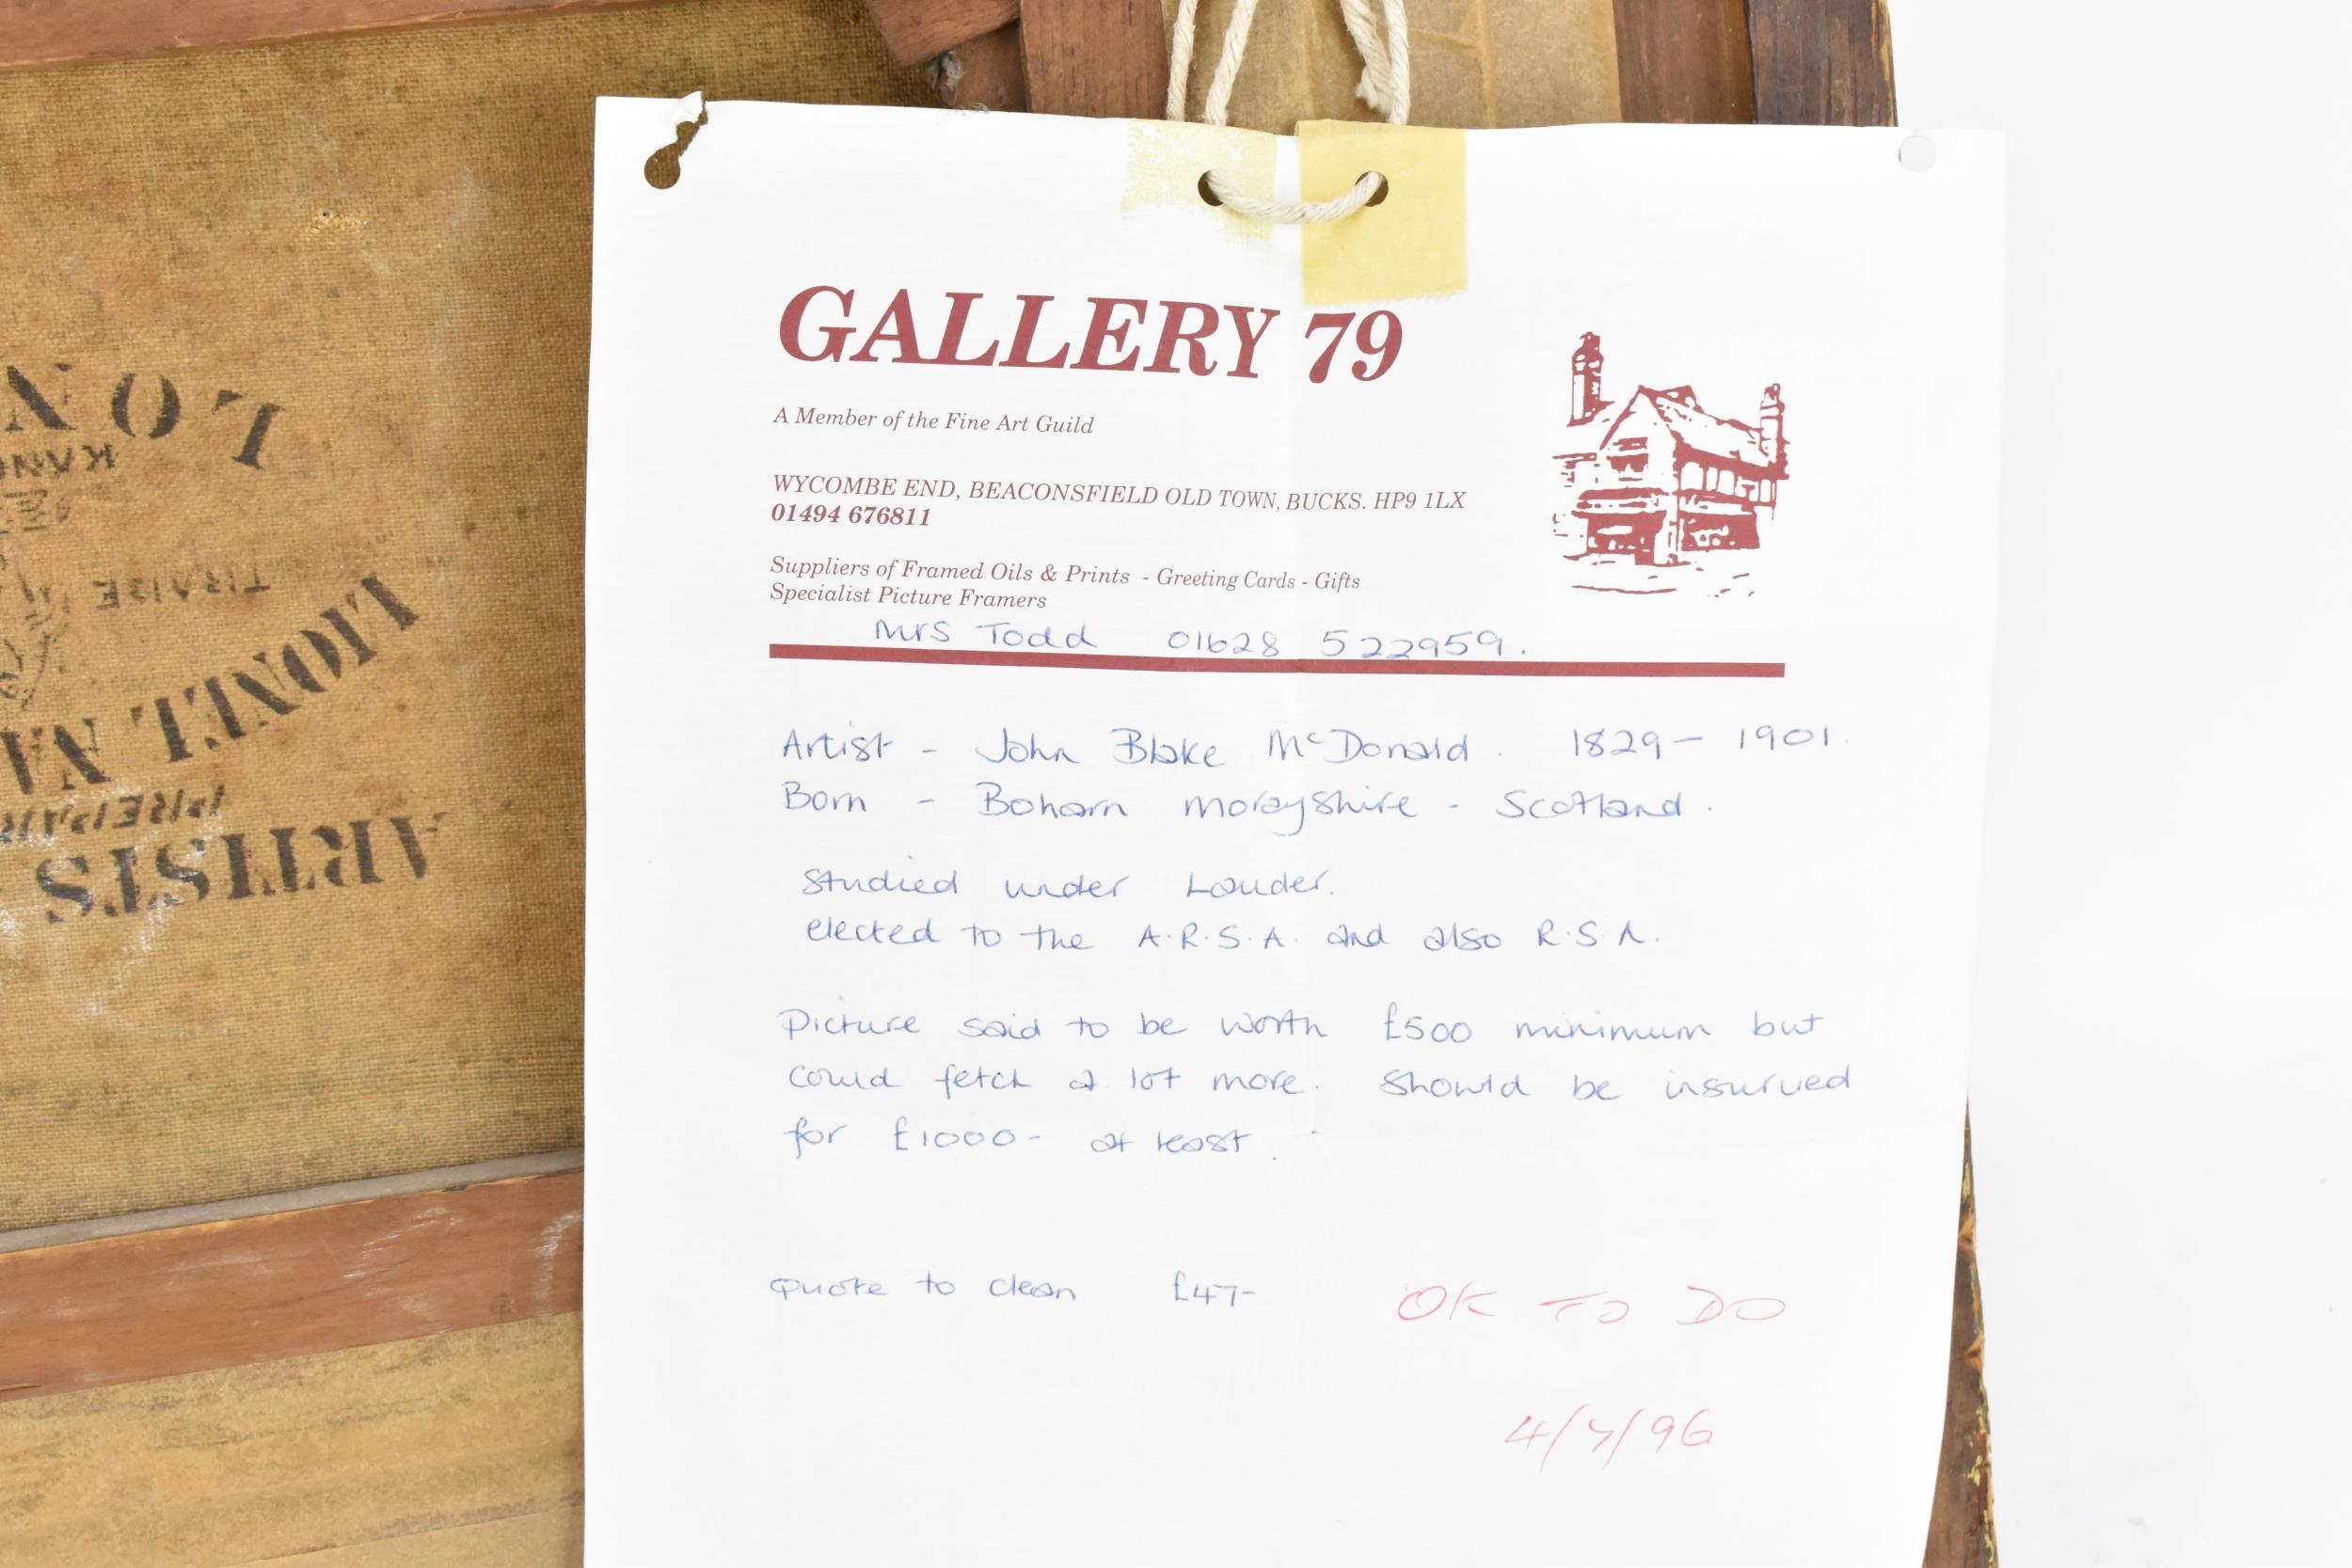 GALLERY 79
A Member of the Fine Art Guild
WYCOMBE END, BEACONSFIELD OLD TOWN, BUCKS. HP9 1LX
01494 676811
Suppliers of Framed Oils & Prints - Greeting Cards - Gifts
Specialist Picture Framers
Mrs Todd 01628 522959.
Artist - John Blake McDonald. 1829 - 1901.
Born - Boharn Morayshire - Scotland.
Studied under Lauder.
elected to the A.R.S.A. and also R.S.A.
Picture said to be worth £500 minimum but
could fetch a lot more. Should be insurued
for £1000- at least.
Quote to clean £47-
OK TO DO
4/7/96
ARTISTS
PREPAR
LIONEL NA
LON